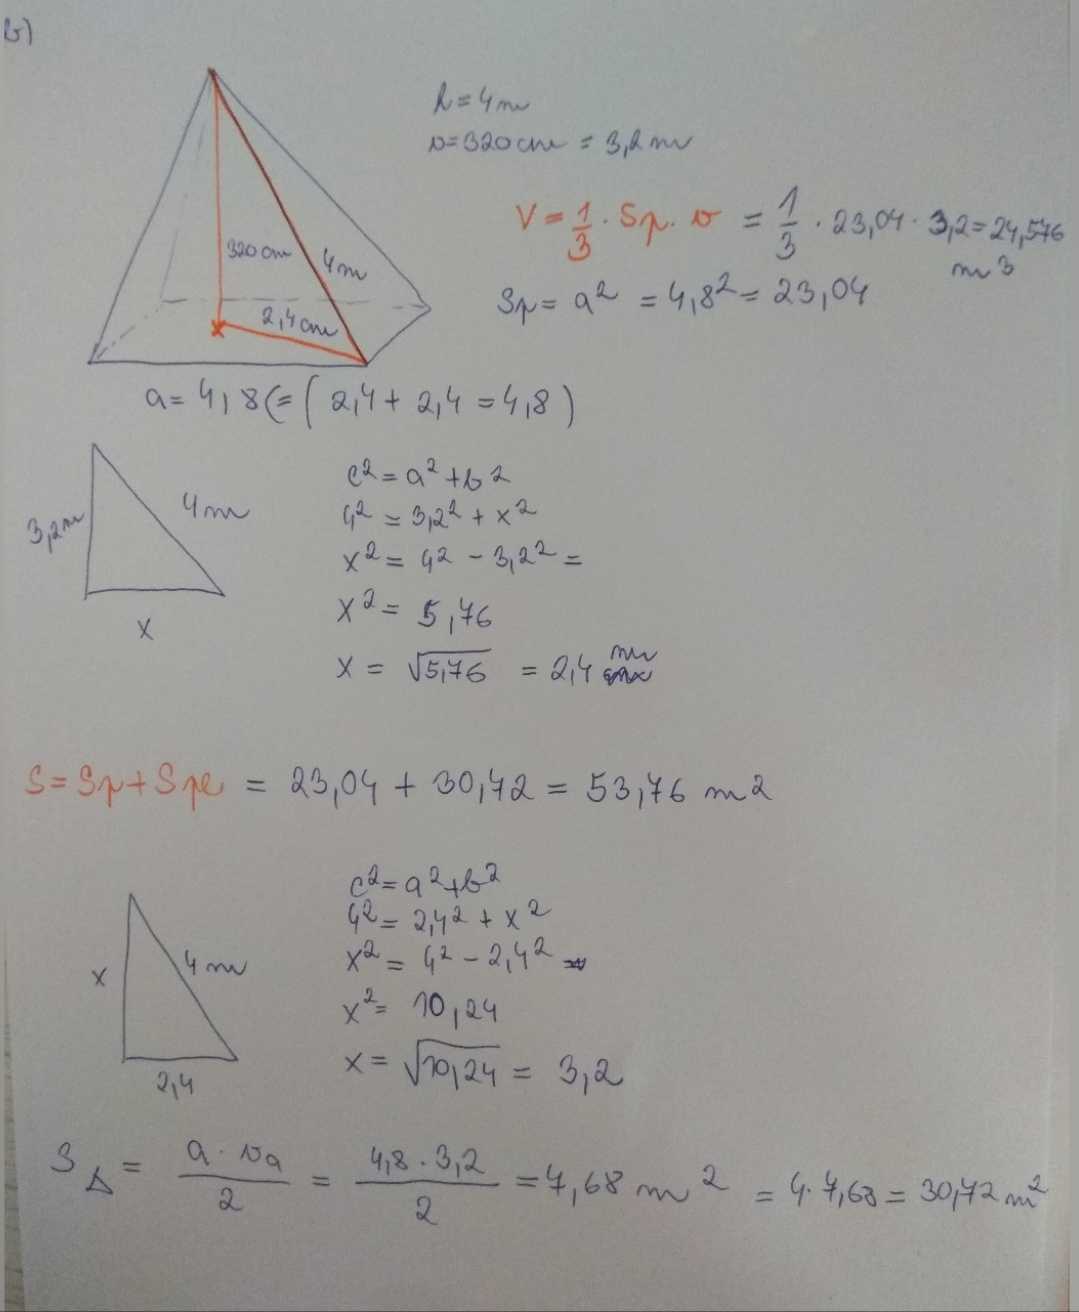 b)
h = 4m
v = 320 cm = 3,2 m
V = 1/3 · Sp · v = 1/3 · 23,04 · 3,2 = 24,576 m³
320 cm
4m
2,4 cm
Sp = a² = 4,8² = 23,04
a = 4,8 (= (2,4 + 2,4 = 4,8)
3,2 m
4 m
x
c² = a² + b²
4² = 3,2² + x²
x² = 4² - 3,2² =
x² = 5,76
x = √5,76 = 2,4 m
S = Sp + Spl = 23,04 + 30,72 = 53,76 m²
x
4 m
2,4
c² = a² + b²
4² = 2,4² + x²
x² = 4² - 2,4²
x² = 10,24
x = √10,24 = 3,2
S△ = a · va / 2 = 4,8 · 3,2 / 2 = 7,68 m² = 4 · 7,68 = 30,72 m²